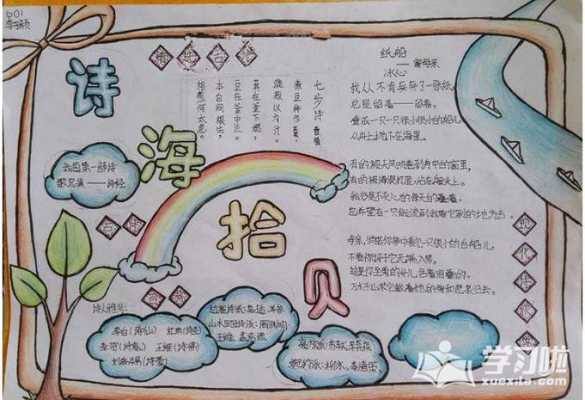 601
诗海拾贝
七步诗 曹植
煮豆持作羹,
漉菽以为汁。
萁在釜下燃,
豆在釜中泣。
本自同根生,
相煎何太急。
纸船
——寄母亲
冰心
我从不肯妄弃了一张纸,
总是留着——留着,
叠成一只一只很小很小的船儿,
从舟上抛下在海里。
有的被天风吹卷到舟中的窗里,
有的被海浪打湿,沾在船头上。
我仍是不灰心的每天的叠着,
总希望有一只能流到我要它到的地方去。
母亲,倘若你梦中看见一只很小的白船儿,
不要惊讶它无端入梦。
这是你至爱的女儿含着泪叠的,
万水千山求它载着她的爱和悲哀归去。
我国第一部诗
歌总集——诗经
诗人雅号:
李白(诗仙) 杜甫(诗圣)
王维(诗佛)
边塞诗派:高适、岑参
山水田园诗派:
王维、孟浩然
学习啦
xuexila.com